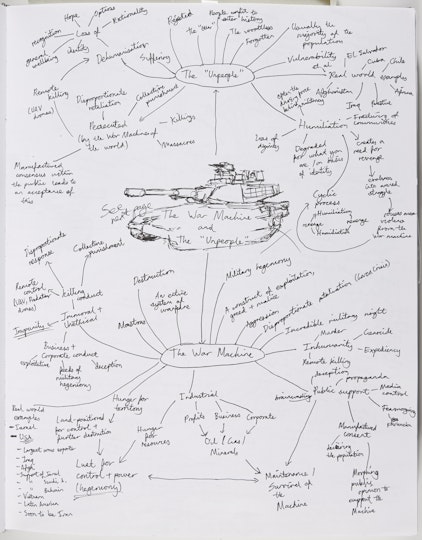 Hope
Options
recognition
Loss of
Rationality
general
wellbeing
identity
Dehumanisation
Suffering
Rejected
The "
People unfit to
enter history
The worthless
Forgotten
Usually the
majority of the
population
The "Unpeople"
Vulnerability
et al
El Salvador
Cuba
Chile
Real world
examples
Afghanistan
Iraq
Palestine
Humiliation
Loss of
dignity
Degraded
for what you
are / on basis
of identity
creates a
need for
revenge
evolves
into armed
struggle
violence
from the
war machine
Cyclic
process
Humiliation
revenge
revenge
Humiliation
Remote
killing
(UAV
drones)
Disproportionate
retaliation
Collective
punishment
Persecuted
(by the War Machine of
the world)
Killings
Massacres
Manufactured
consensus within
the public leads to
an acceptance of
this
See page
The War Machine
and
The "Unpeople"
Disproportionate
response
Collective
punishment
Remote
control
(UAV, Predator
drones)
killing
conduct
Impunity
Immoral +
Unethical
Business +
Corporate conduct
exploitative
deception
military
hegemony
Destruction
An entire
system of
warfare
Monstrous
Military hegemony
A construct of exploitation,
greed + malice
Aggression
Disproportionate retaliation
Incredible military might
Murder
Genocide
Inhumanity
Expediency
Remote killing
deception
The War Machine
propaganda
Public support
Media
control
Fearmongering
brainwashing
Manufactured
consent
the population
Morphing
public
opinion to
support the
Machine
Real world
examples
- Israel
- USA
- Largest arms exports
- Iraq
- Afgh.
- Support of Israel
" " Saudi A.
" " Bahrain
- Vietnam
- Latin America
- Soon to be Iran
Land-positioned
for control +
further domination
Hunger for
territory
Lust for
control + power
(hegemony)
Hunger
for
resources
Industrial
Profits
Business
Corporate
Oil / Gas /
Minerals
Maintenance /
Survival of
the
Machine